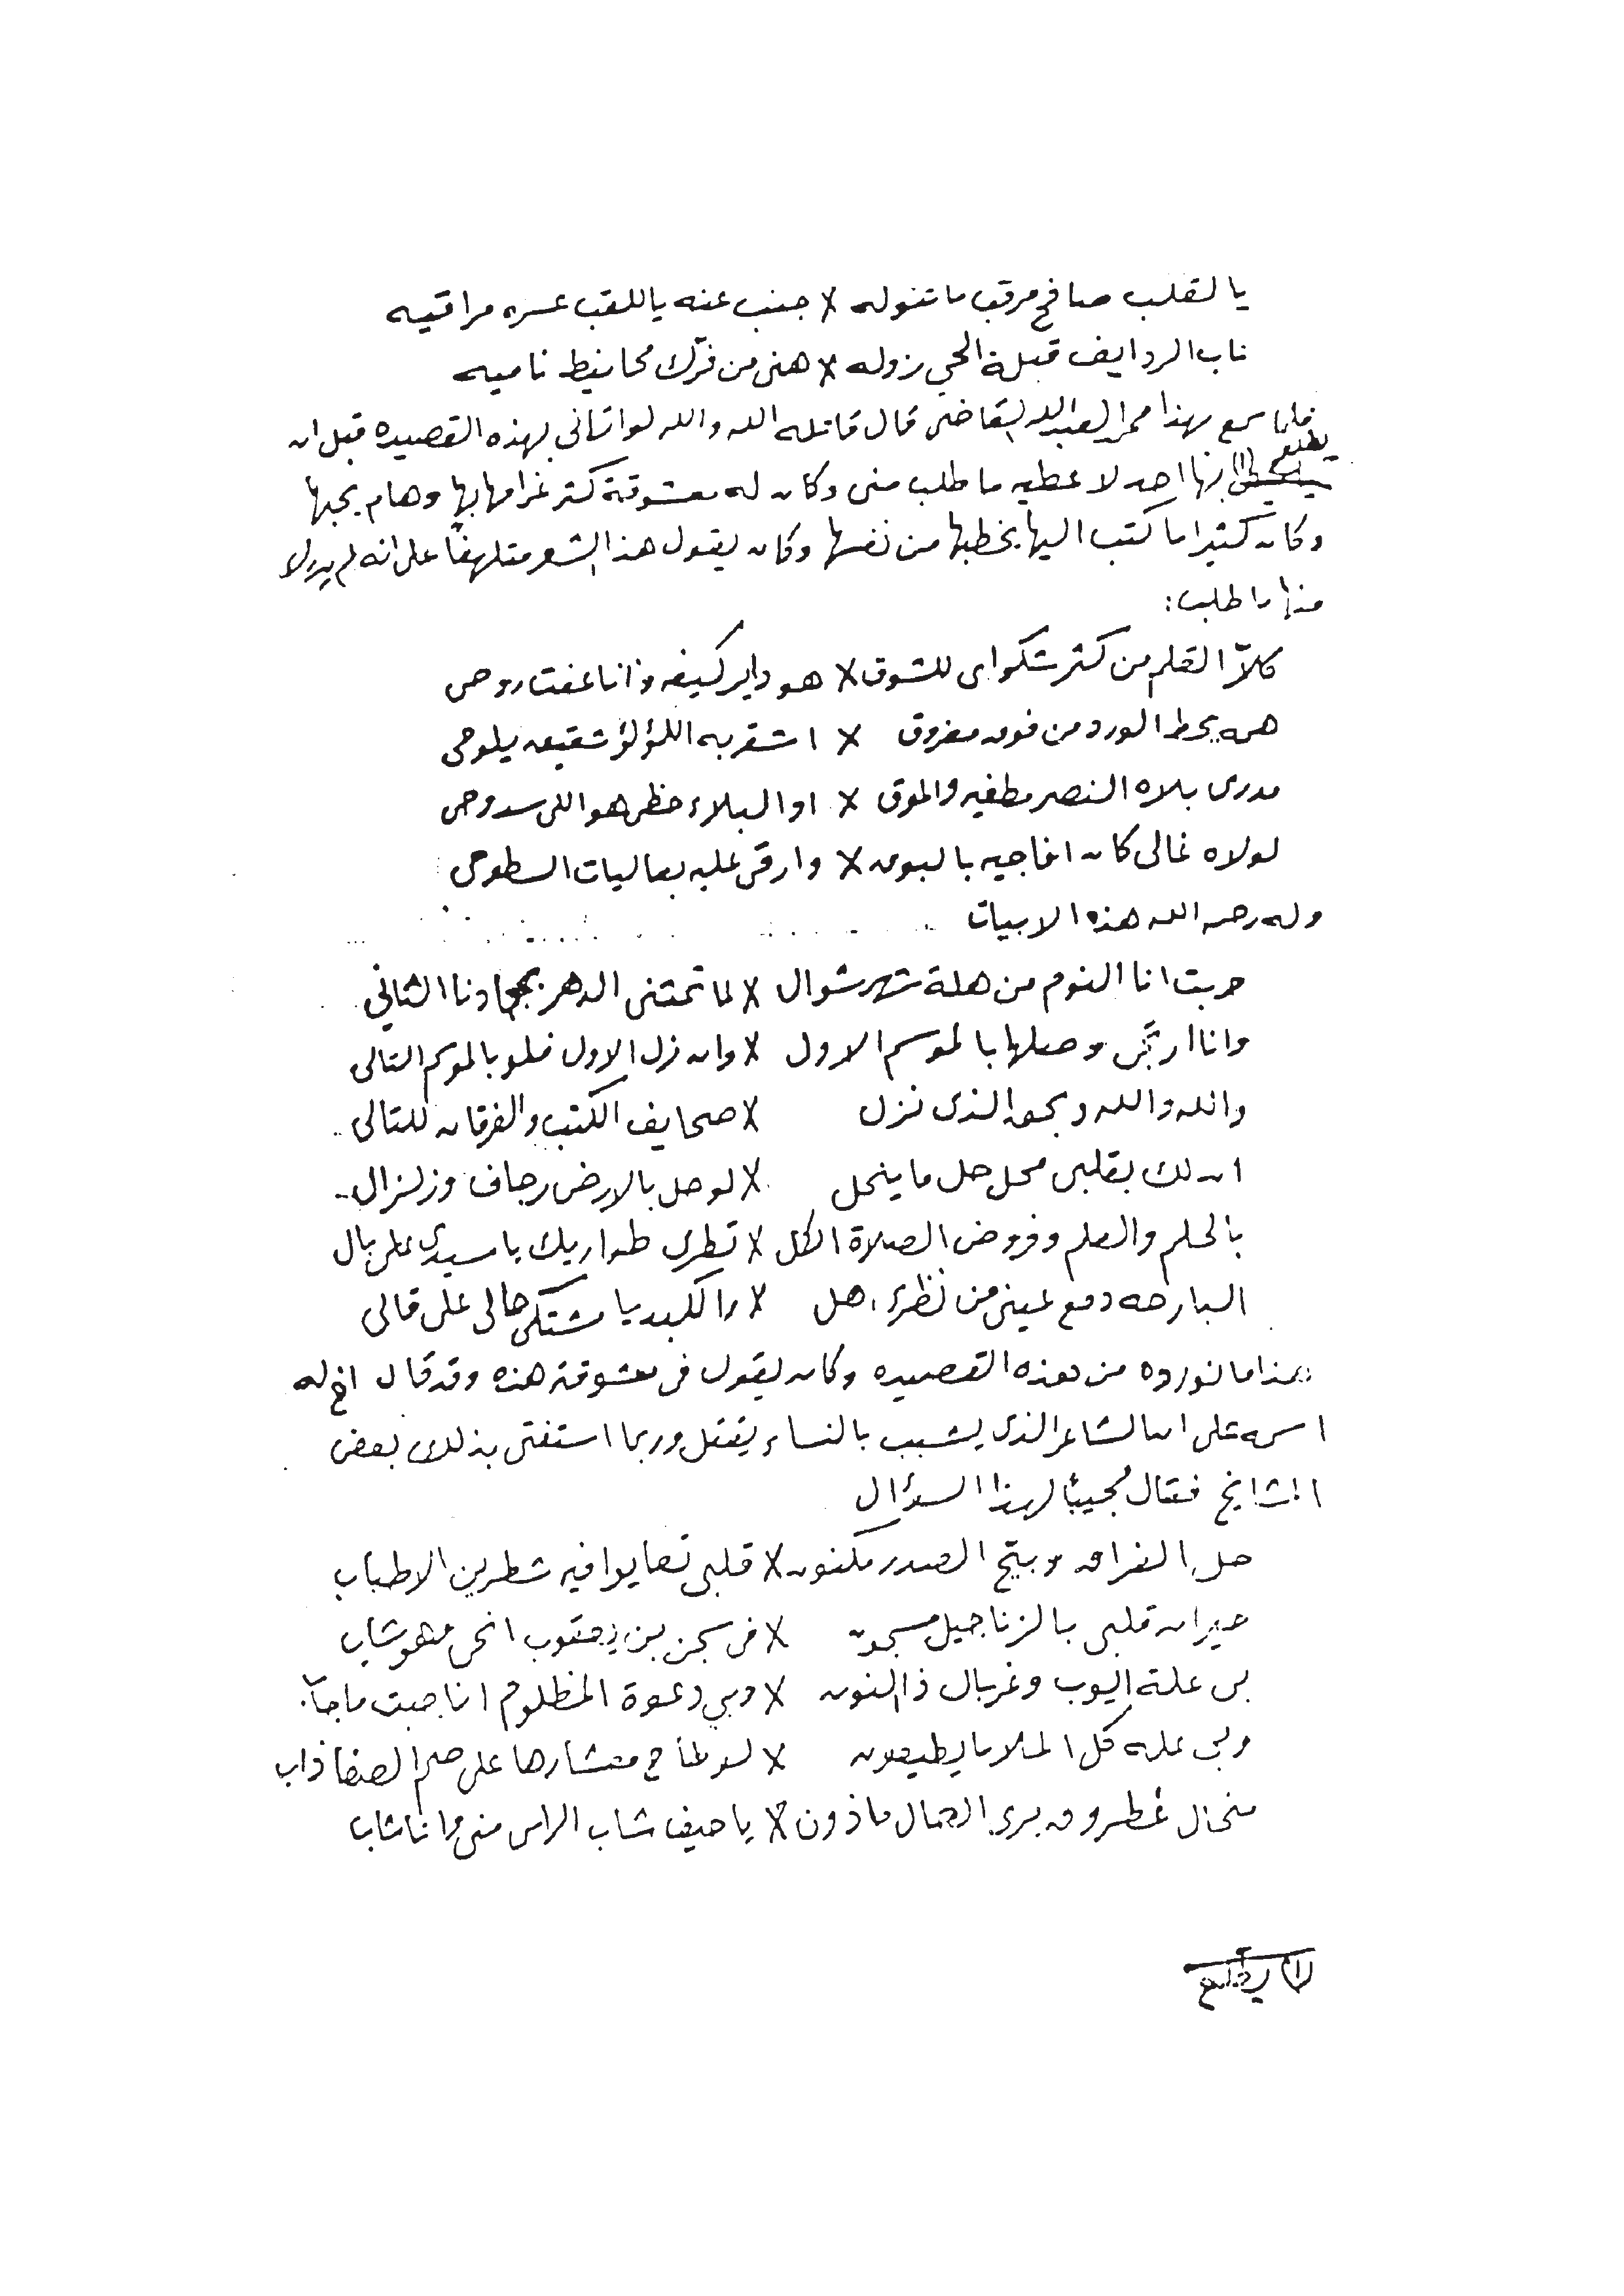 يا لقلب صافح مرقب ما تنوله × جنب عنه يا للقب عسره مراقيه
ناب الردايف قبلة الحي زوله × هني من فرّك محانيط ناميه
فلما سمع بهذا محمد العبدالله القاضي قال قاتله الله والله لو اتاني بهذه القصيده قبل ان
يطلع بها احد لاعطيه ما طلب مني وكان له معشوقة كثر غرامها بها وهام بحبها
وكان كثيرا ما كتب اليها يخطبها من نفسها وكان يقول هذا الشعر متلهفاً على انه لم يدرك
منها ما طلب:
كلاّ القلم من كثر شكواي للشوق × هو داير كيفه وانا عفت روحي
هيه يحط الورد من فوق مفروق × اشقر به اللؤلؤ شقيقه يلوحي
مدري بلاه النصر مطغيه والموق × او البلاء حظي هو اللي سدوحي
لولاه غالي كان افاجيه بالبوق × وارقى عليه بعاليات السطوحي
وله رحمه الله هذه الابيات
حربت انا النوم من هلة شهر شوال × لما تحتني الدهر الثاني
وانا ارتجي وصلها بالموسم الاول × وان زل الاول فلو بالموسم التالي
والله والله وبحق الذي نزل × صحايف الكتب والفرقان للتالي
ان لك بقلبي محل حل ما ينحل × لو حل بالارض رجاف وزلزال
بالحلم والعلم وفروض الصلاة الكل × تطري طواريك يا سيدي على بال
البارحه دمع عيني من نظري اهل × والكبد يا مشتكى حالي على قالي
هذا ما نورده من هذه القصيده وكان يقول في معشوقته هذه وقد قال اخ له
اسمه علي ان الشاعر الذي يشبب بالنساء يقتل وربما استفتى بذلك بعض
المشايخ فقال مُجيباً لهذا السؤال
حلِ الفراق وبيّح الصدر مكنون × قلبي تعايوا فيه شطرين الاطباب
حيران قلبي بالزناجيل مسجون × في سجن بن يعقوب انحى مهو شاب
بي علة ايوب وغربال ذا النون × وبي دعوة المظلوم انا جبت ما جاب
وبي عله كل الملا ما يطيقون × لو طاح معشارها على صم الصفا ذاب
منحال غطروف برى الحال ماذون × يا حيف شاب الراس مني وانا شاب
لا يطلع